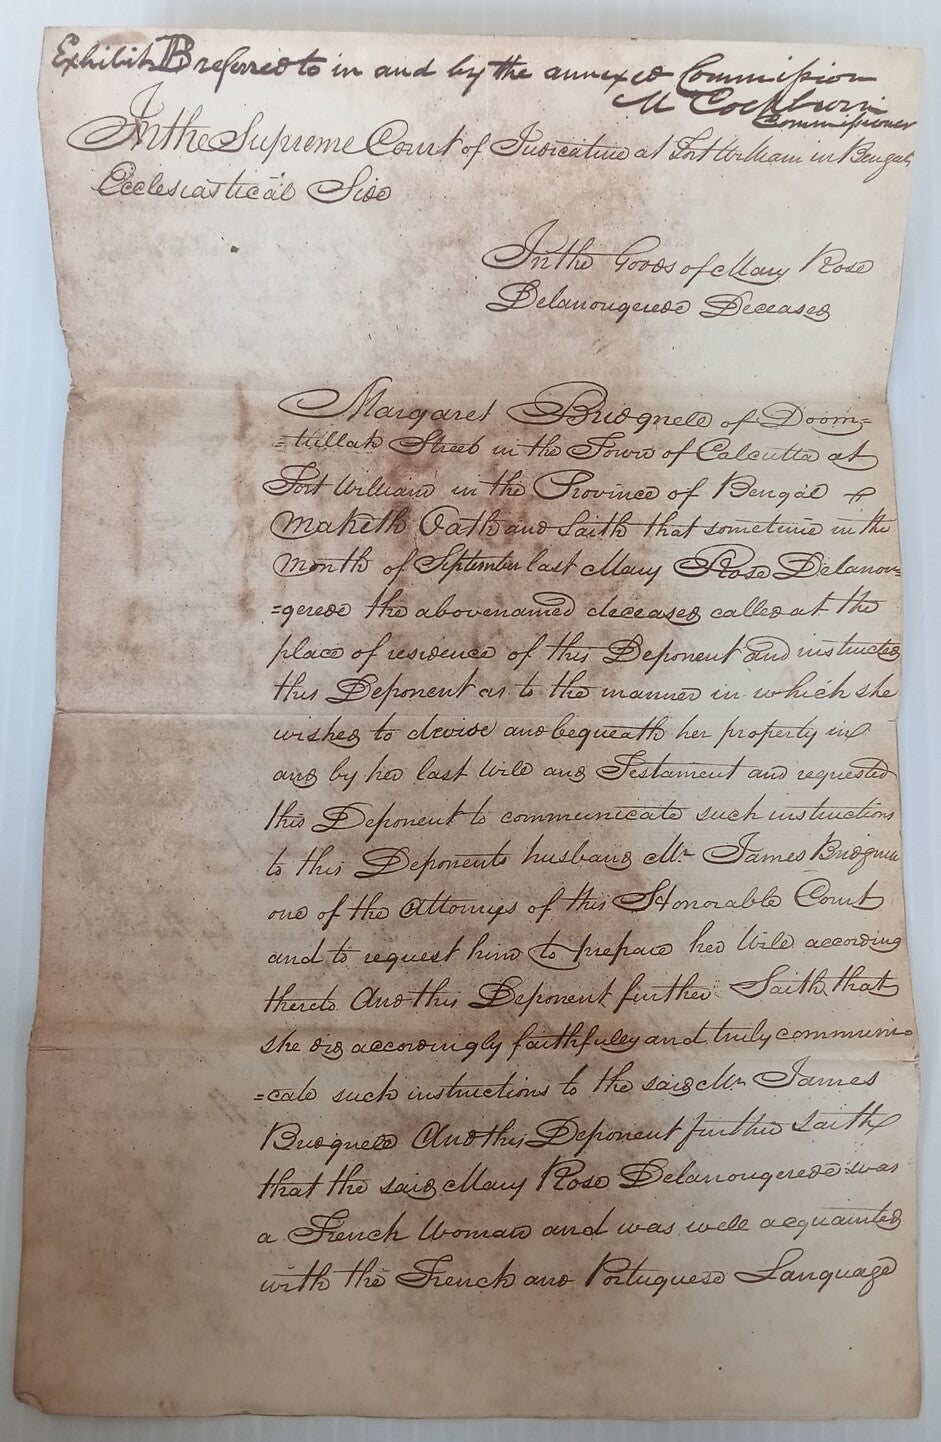 Exhibit B referred to in and by the annexed Commission
M Cockburn
Commissioner
In the Supreme Court of Judicature at Fort William in Bengal
Ecclesiastical Side
In the Goods of Mary Rose
Delanougerede Deceased
Margaret Bridgnell of Doom=
=tullah Street in the Town of Calcutta at
Fort William in the Province of Bengal
maketh Oath and Saith that sometime in the
month of September last Mary Rose Delanou=
=gerede the abovenamed deceased called at the
place of residence of this Deponent and instructed
this Deponent as to the manner in which she
wished to devise and bequeath her property in
and by her last Will and Testament and requested
this Deponent to communicate such instructions
to this Deponents husband Mr James Bridgnell
one of the Attornies of this Honorable Court
and to request him to prepare her Will according
thereto And this Deponent further Saith that
she did accordingly faithfully and truly communi=
=cate such instructions to the said Mr James
Bridgnell And this Deponent further saith
that the said Mary Rose Delanougerede was
a French Woman and was well acquainted
with the French and Portuguese Language